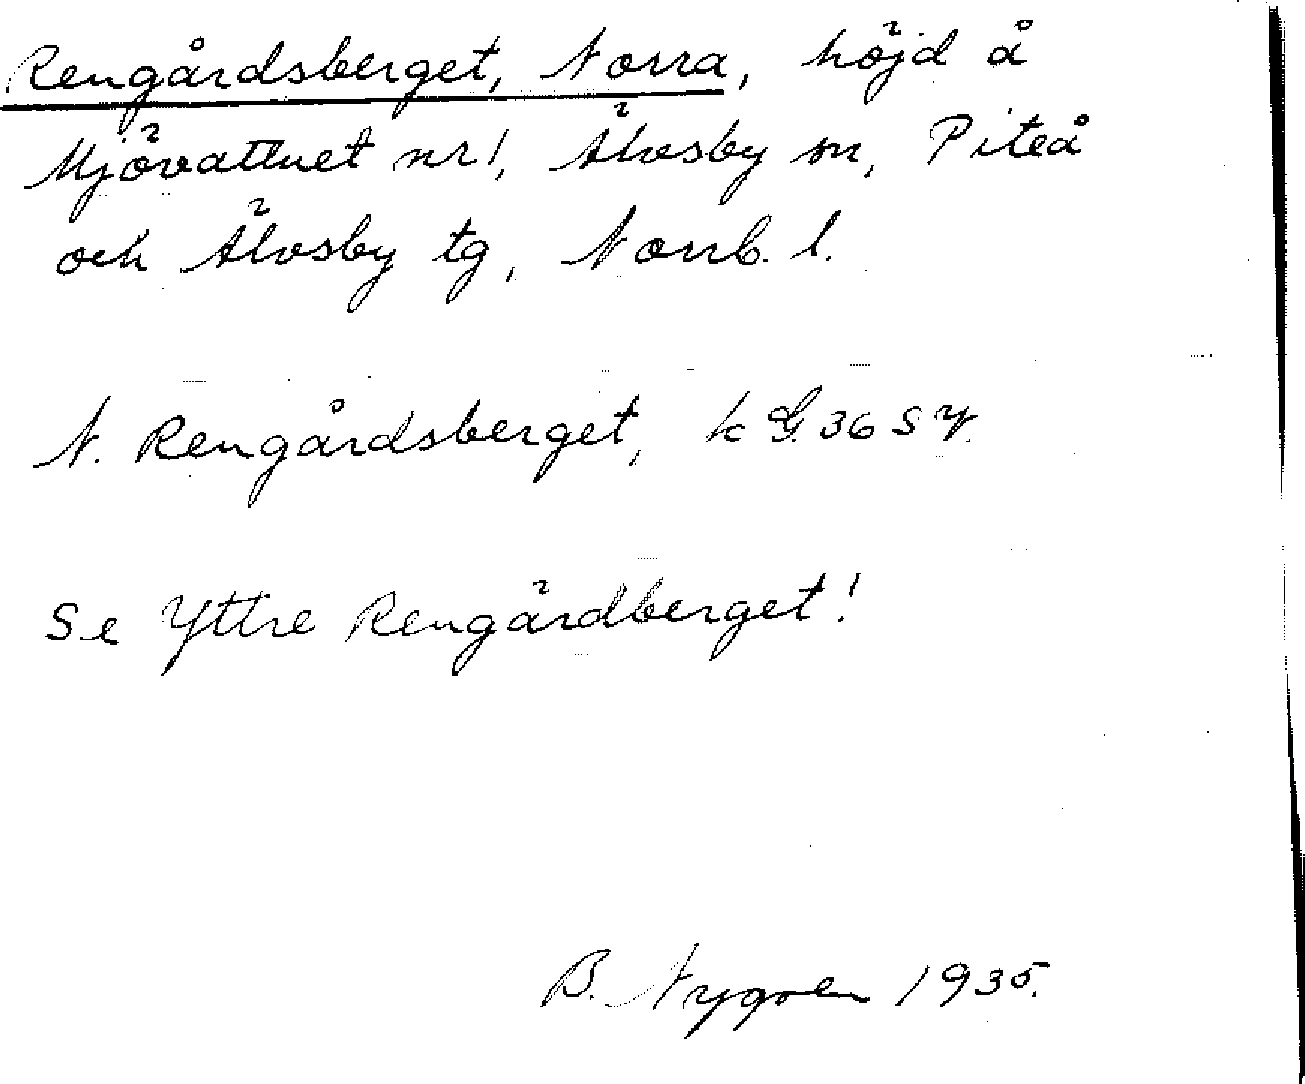 Rengårdsberget, Norra, höjd å
Mjövattnet nr 1, Älvsby sn, Piteå
och Älvsby tg, Norrb. l.
N. Rengårdsberget, k G. 36 S
Se Yttre Rengårdberget!
B. Nygren 1935.